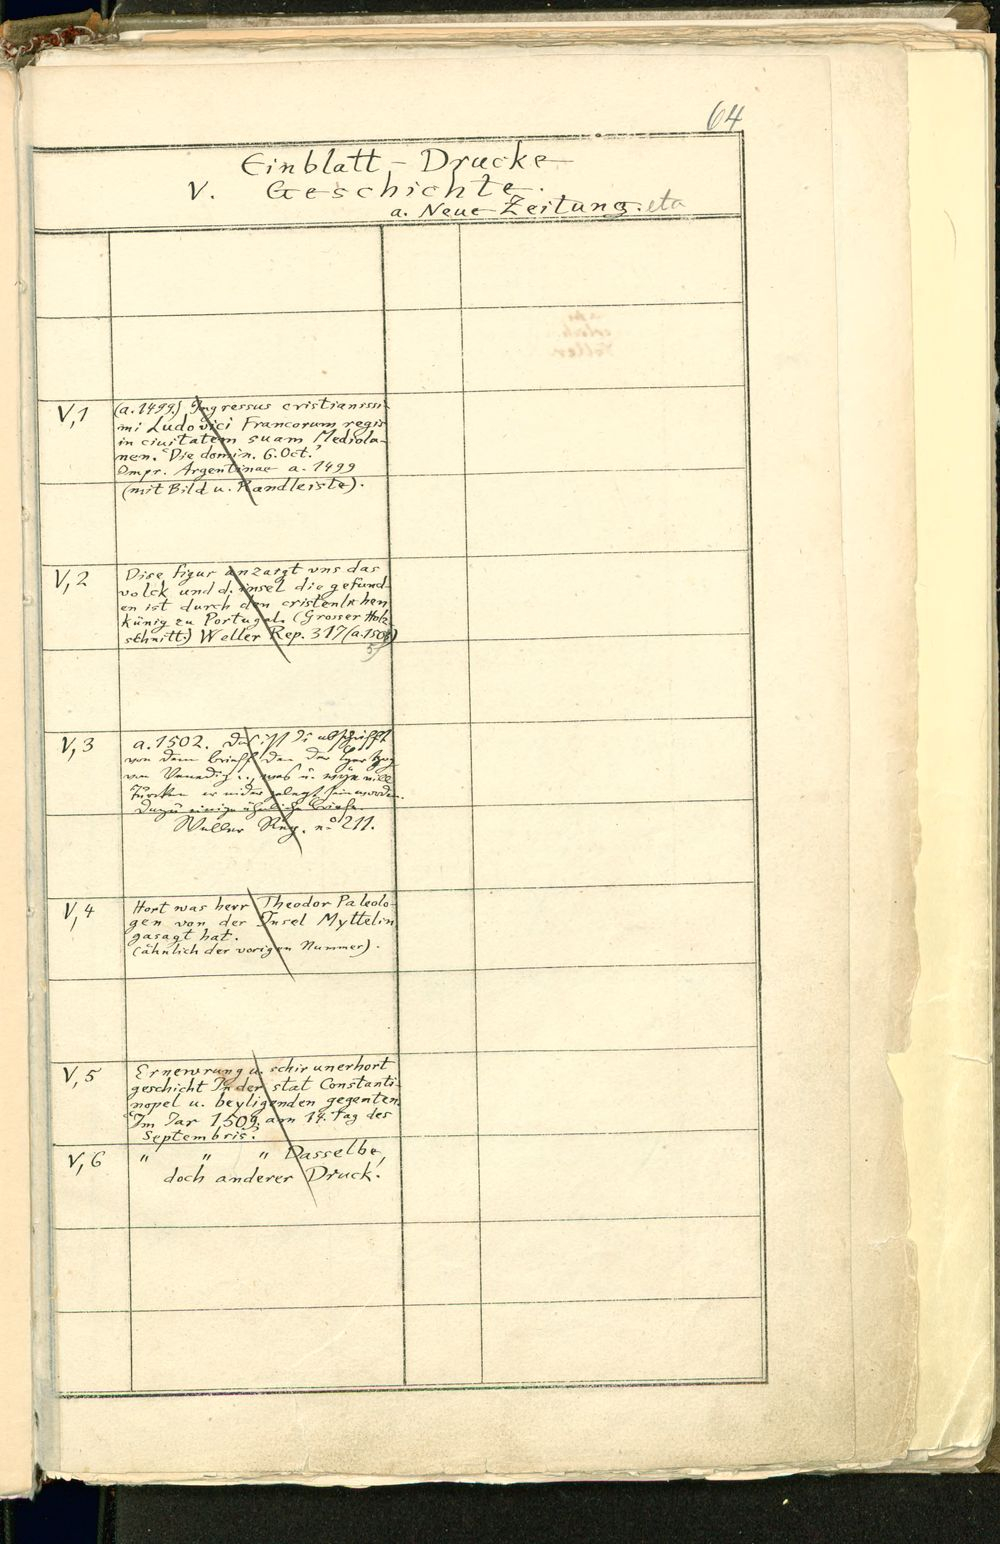 64
Einblatt-Drucke
V. Geschichte.
a. Neue Zeitung. etc
V,1
(a. 1499.) Ingressus cristianssi-
mi Ludovici Francorum regis
in ciuitatem suam Mediola-
nen. "Die domin. 6. Oct."
Impr. Argentinae a. 1499
(mit Bild u. Randleiste).
V,2
Dise figur anzaigt vns das
volck und d. insel die gefund-
en ist durch den cristenlichen
künig zu Portugal. (Grosser Holz-
schnitt.) Weller Rep. 317 (a. 1505)
5
V,3
a. 1502. Das ist di abschrifft
von dem brieff den der Hertzog
von Venedig .. was u. wye vill
Türcken er nider gelegt sein worden.
Dazu einige ähnliche Briefe.
Weller Rep. no 211.
V,4
Hort was herr Theodor Paleolo-
gen von der Insel Myttelin
gasagt hat.
(ähnlich der vorigen Nummer).
V,5
Ernewrung u. schir unerhort
geschicht In der stat Constanti-
nopel u. beyligenden gegenten.
"Im Jar 1509. am 14. Tag des
Septembris."
V,6
" " " Dasselbe,
doch anderer Druck.